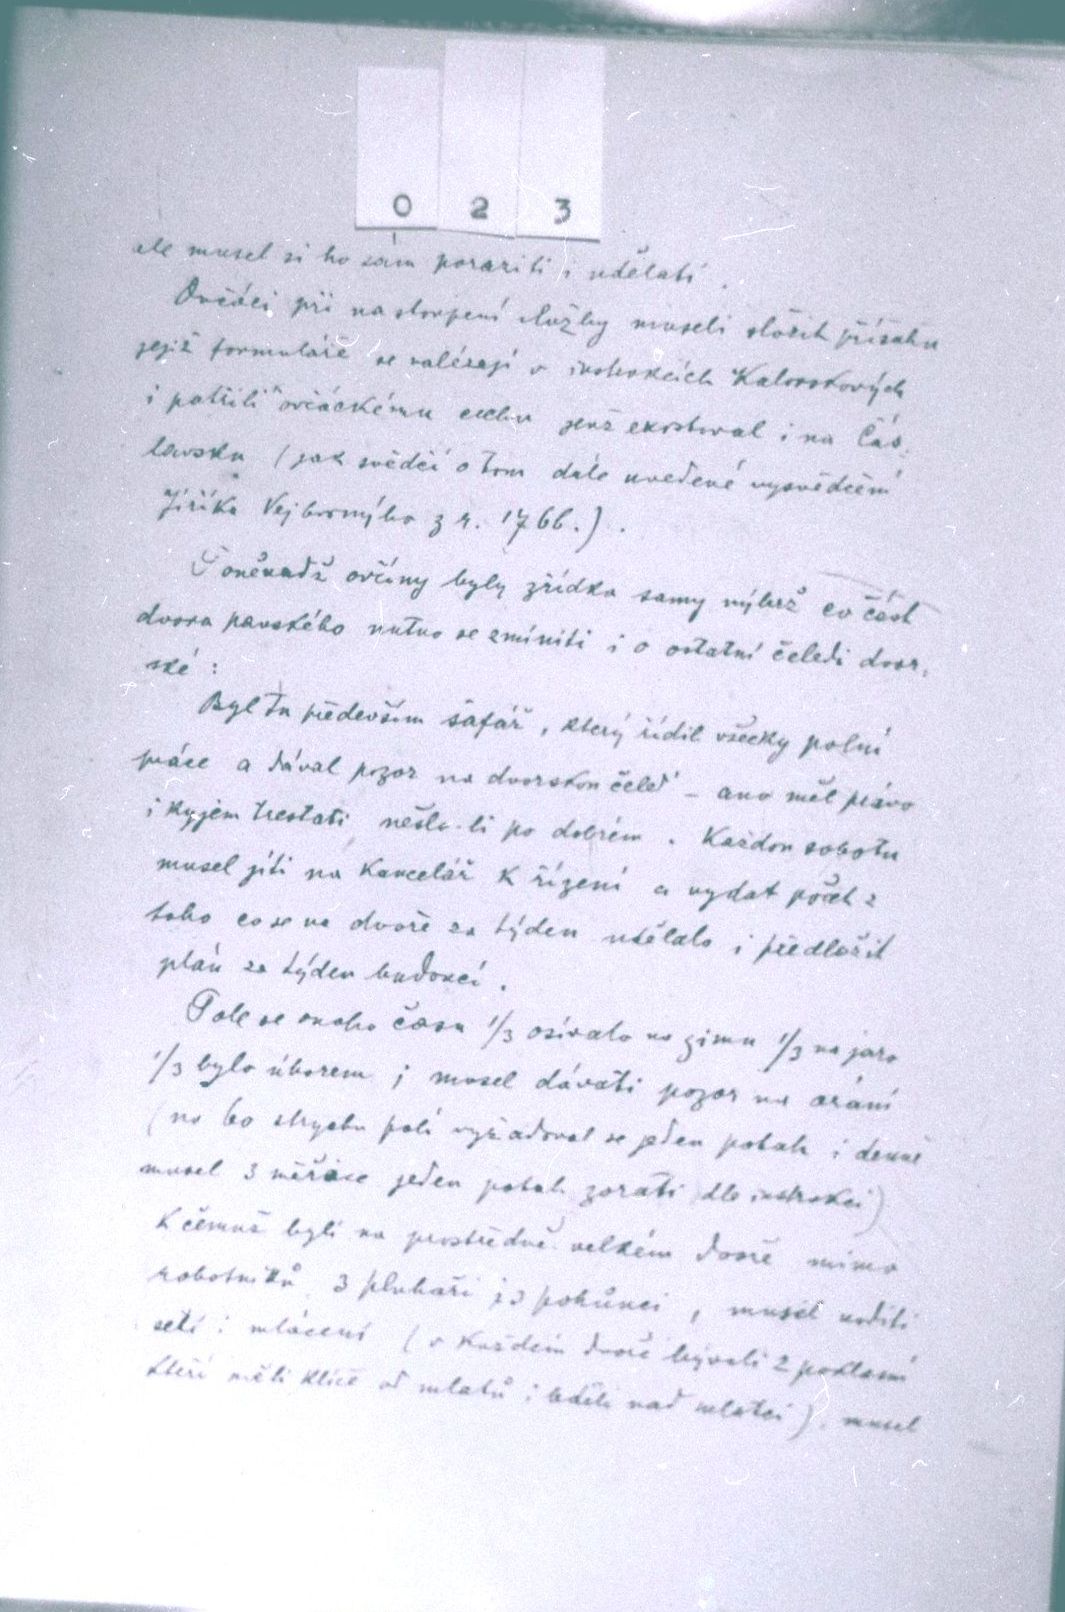 0 2 3
ale musel si ho sám poraziti i udělati.
Ovčáci při nastoupení služby museli složit přísahu
jejíž formuláře se nalézají v instrukcích Kalouskových
i patřili ovčáckému cechu jenž existoval i na Čás-
lavsku (jak svědčí o tom dále uvedené vysvědčení
Jiříka Vejborného z r. 1766.).
Poněvadž ovčíny byly zřídka samy nýbrž co část
dvora panského nutno se zmíniti i o ostatní čeledi dvor-
ské:
Byl tu především šafář, který řídil všecky polní
práce a dával pozor na dvorskou čeleď - ano měl právo
i kyjem trestati nešlo-li po dobrém. Každou sobotu
musel jíti na kancelář k řízení a vydat počet z
toho co se na dvoře za týden udělalo i předložit
plán za týden budoucí.
Pole se onoho času 1/3 osívalo na zimu 1/3 na jaro
1/3 bylo úhorem; musel dávati pozor na orání
(na 60 strychů polí vyžadoval se jeden potah i denně
musel 3 měřice jeden potah zorati dle instrukcí)
k čemuž byli na prostředně velkém dvoře mimo
robotníků 3 pluhaři i 3 pohůnci, musel
setí i mlácení (v každém dvoře bývali 2 poklasní
kteří měli klíče od mlatů i bděli nad mlatci), musel